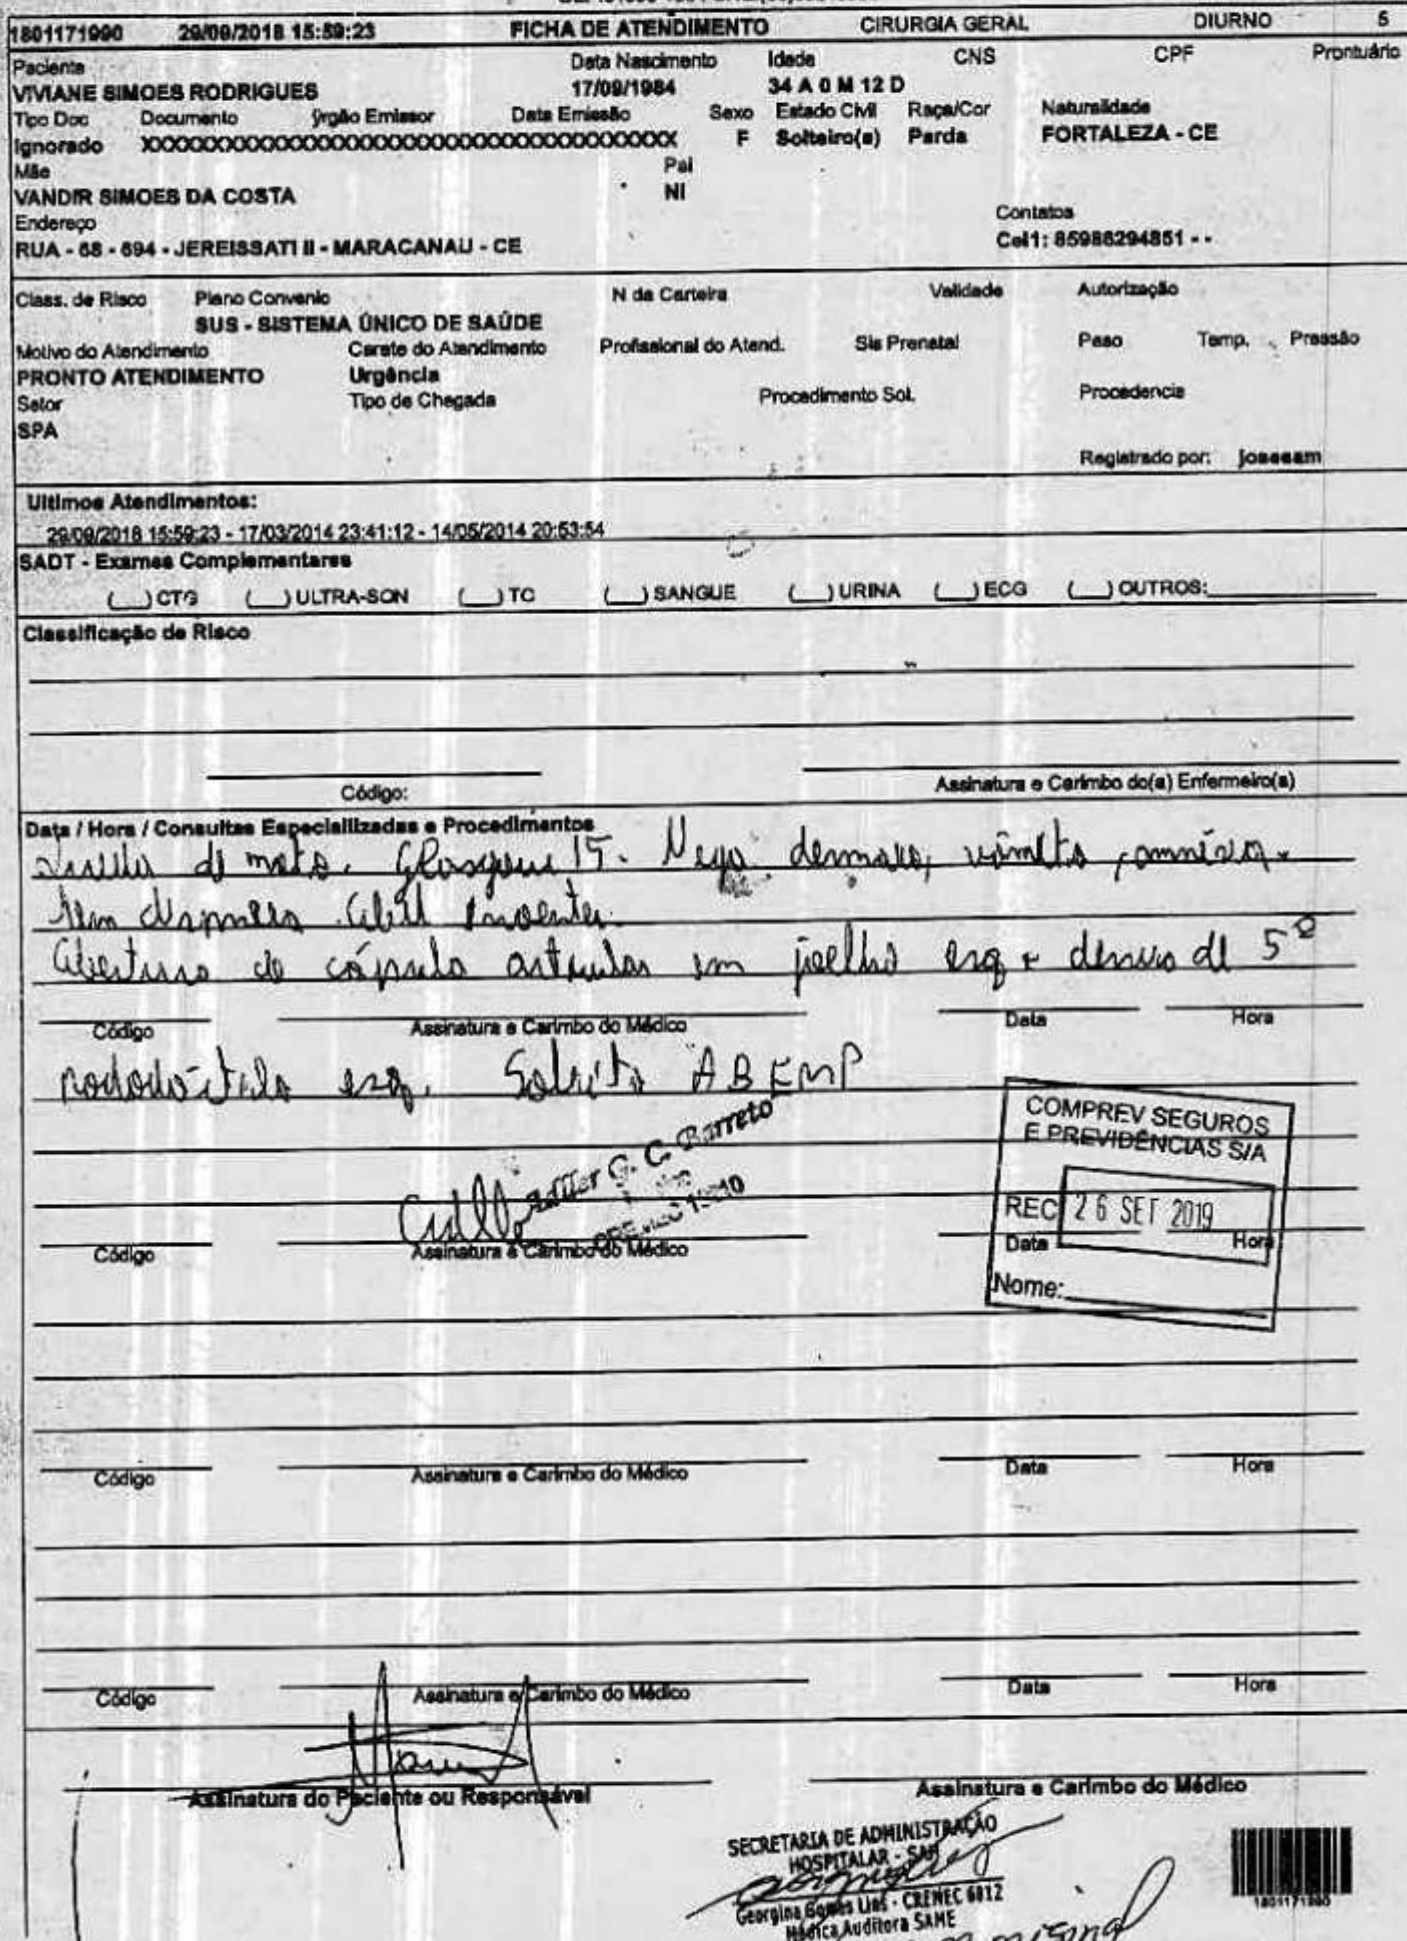 1801171990 29/09/2018 15:59:23 FICHA DE ATENDIMENTO CIRURGIA GERAL DIURNO 5
Paciente Data Nascimento Idade CNS CPF Prontuário
VIVIANE SIMOES RODRIGUES 17/09/1984 34 A 0 M 12 D
Tipo Doc Documento Órgão Emissor Data Emissão Sexo Estado Civil Raça/Cor Naturalidade
Ignorado XXXXXXXXXXXXXXXXXXXXXXXXXXXXXXXXXXXXXXXX F Solteiro(a) Parda FORTALEZA - CE
Mãe Pai
VANDIR SIMOES DA COSTA NI
Endereço Contatos
RUA - 68 - 694 - JEREISSATI II - MARACANAU - CE Cel1: 85986294851 - -
Class. de Risco Plano Convenio N da Carteira Validade Autorização
SUS - SISTEMA ÚNICO DE SAÚDE
Motivo do Atendimento Carate do Atendimento Profissional do Atend. Sis Prenatal Peso Temp. Pressão
PRONTO ATENDIMENTO Urgência
Setor Tipo de Chegada Procedimento Sol. Procedencia
SPA
Registrado por: josesam
Ultimos Atendimentos:
29/09/2018 15:59:23 - 17/03/2014 23:41:12 - 14/05/2014 20:53:54
SADT - Exames Complementares
(__)CTG (__)ULTRA-SON (__)TC (__)SANGUE (__)URINA (__)ECG (__)OUTROS:
Classificação de Risco
Código: Assinatura e Carimbo do(a) Enfermeiro(a)
Data / Hora / Consultas Especiallizadas e Procedimentos
de moto. Glasgow 15. Nega desmaio, vômito, amnésia.
Sem dispneia.
Abertura de cápsula articular em joelho esq + de 5º
Código Assinatura e Carimbo do Médico Data Hora
pododáctilo esq. Solicito
G. C. Barreto
COMPREV SEGUROS
E PREVIDÊNCIAS S/A
REC 26 SET 2019
Código Assinatura e Carimbo do Médico Data Hora
Nome:
Código Assinatura e Carimbo do Médico Data Hora
Código Assinatura e Carimbo do Médico Data Hora
Assinatura do Paciente ou Responsável Assinatura e Carimbo do Médico
SECRETARIA DE ADMINISTRAÇÃO
HOSPITALAR - SAH
Georgina Gomes Lins - CREMEC 6812
Médica Auditora SAME
1801171990